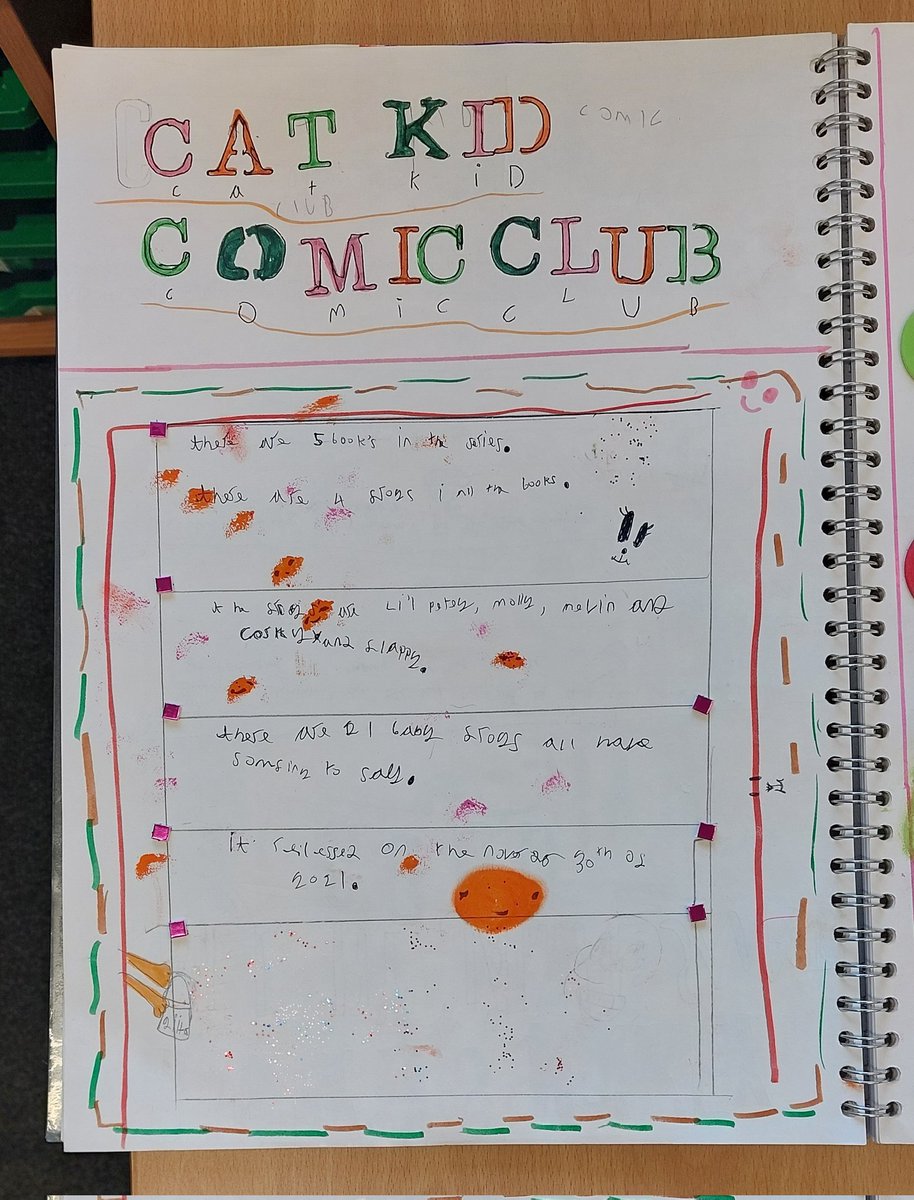 CAT KID
comic
c a t k i D
CLUB
COMIC CLUB
c O M i C C L U B
there are 5 book's in the series.
there are 4 frogs i all the books.
the frogs are Li'l petey, molly, melvin and
corky and flappy.
there are 21 baby frogs all have
somsing to say.
It on the 30th of
2021.